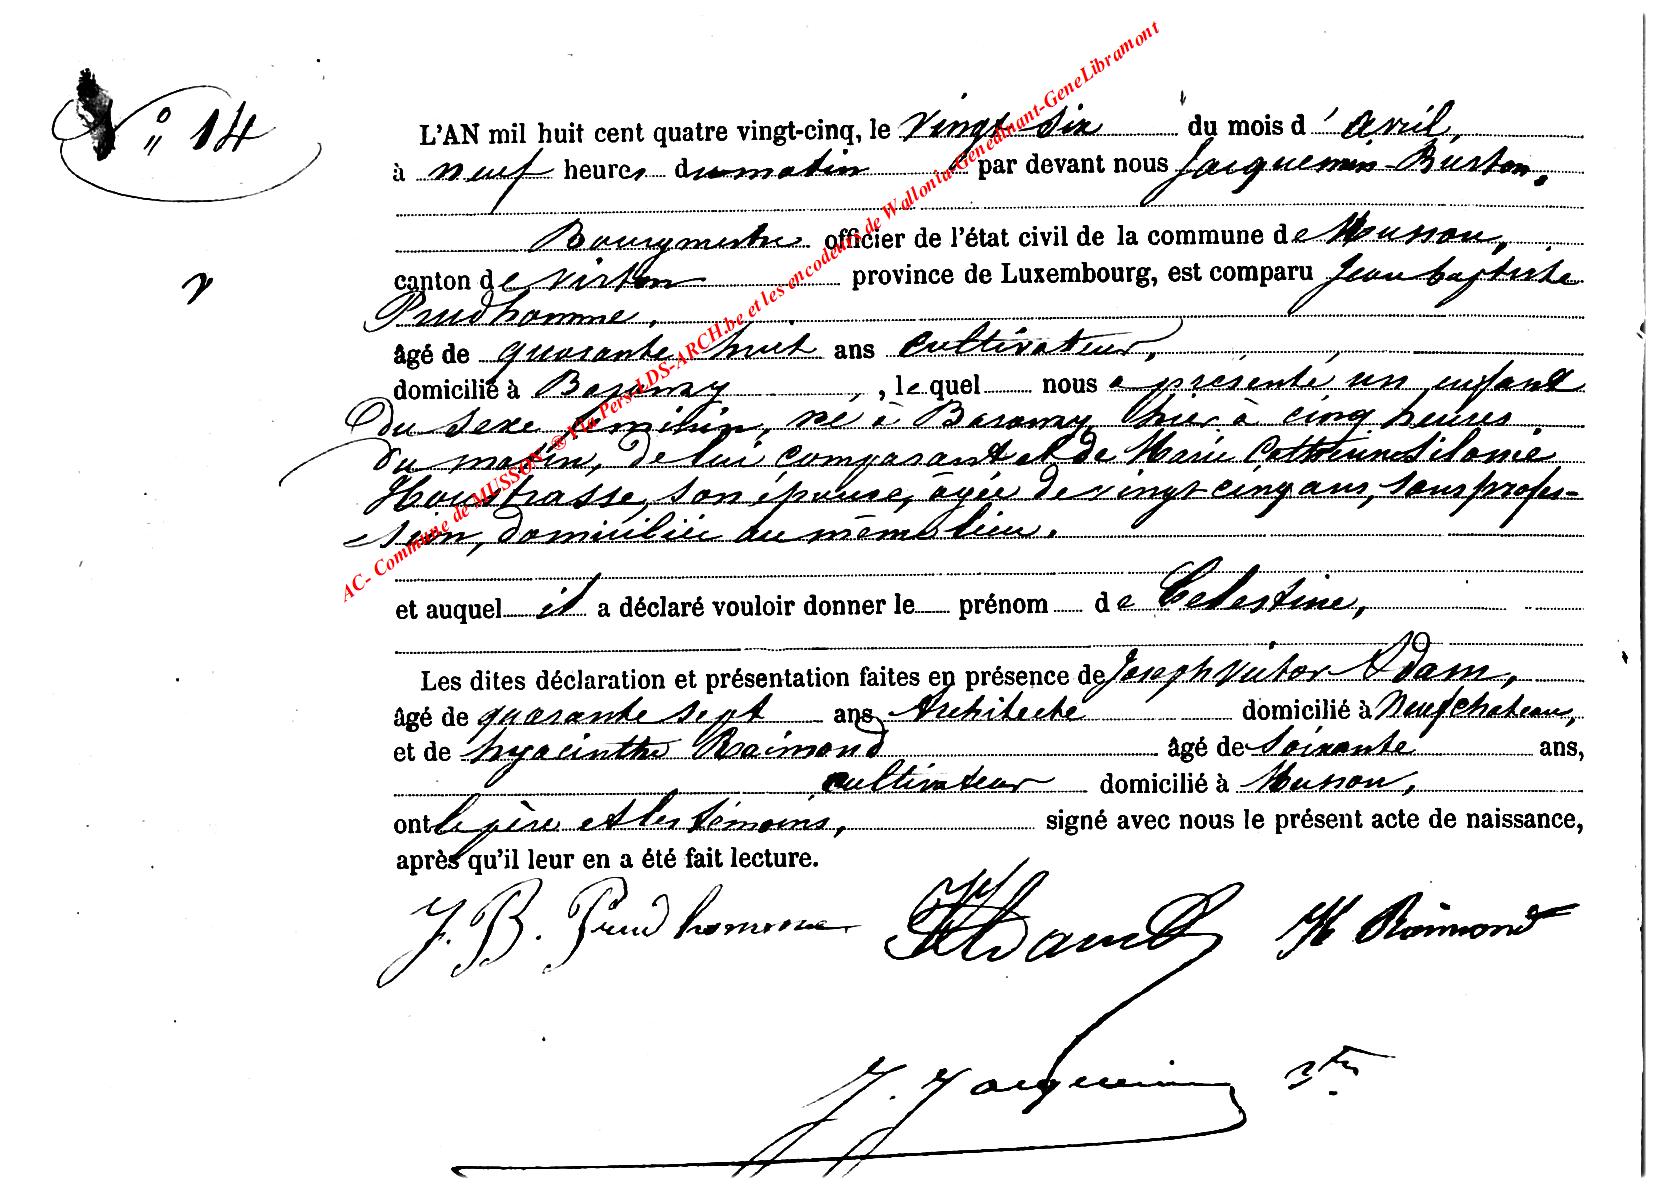 N° 14
L'AN mil huit cent quatre vingt-cinq, le vingt-six du mois d'avril,
à neuf heures du matin par devant nous Jacquemin-Burton,
Bourgmestre officier de l'état civil de la commune de Musson,
canton de Virton province de Luxembourg, est comparu Jean baptiste
Prudhomme,
âgé de quarante huit ans cultivateur,
domicilié à Baranzy, lequel nous a présenté un enfant
du sexe féminin, né à Baranzy hier à cinq heures
du matin, de lui comparant et de Marie Catherine
son épouse, âgée de vingt cinq ans, sans profes-
sion, domiciliée au même lieu.
et auquel il a déclaré vouloir donner le prénom de Celestine,
Les dites déclaration et présentation faites en présence de Joseph Victor Adam,
âgé de quarante sept ans Architecte domicilié à Neufchateau,
et de hyacinthe Raimond âgé de soixante ans,
cultivateur domicilié à Musson,
ont le père et les témoins, signé avec nous le présent acte de naissance,
après qu'il leur en a été fait lecture.
J. B. Prudhomme Adam H Raimond
J. Jacquemin
AC- Commune de MUSSON ® LDS-ARCH.be et les encodeurs de Wallonia-Genedinant-GeneLibramont